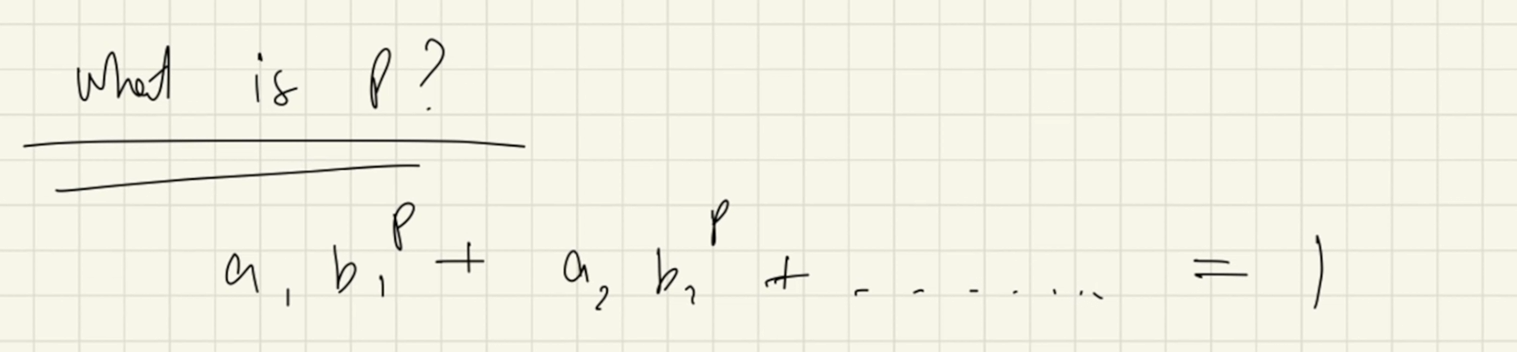 What is P?
a₁ b₁ᵖ + a₂ b₂ᵖ + ........ = 1